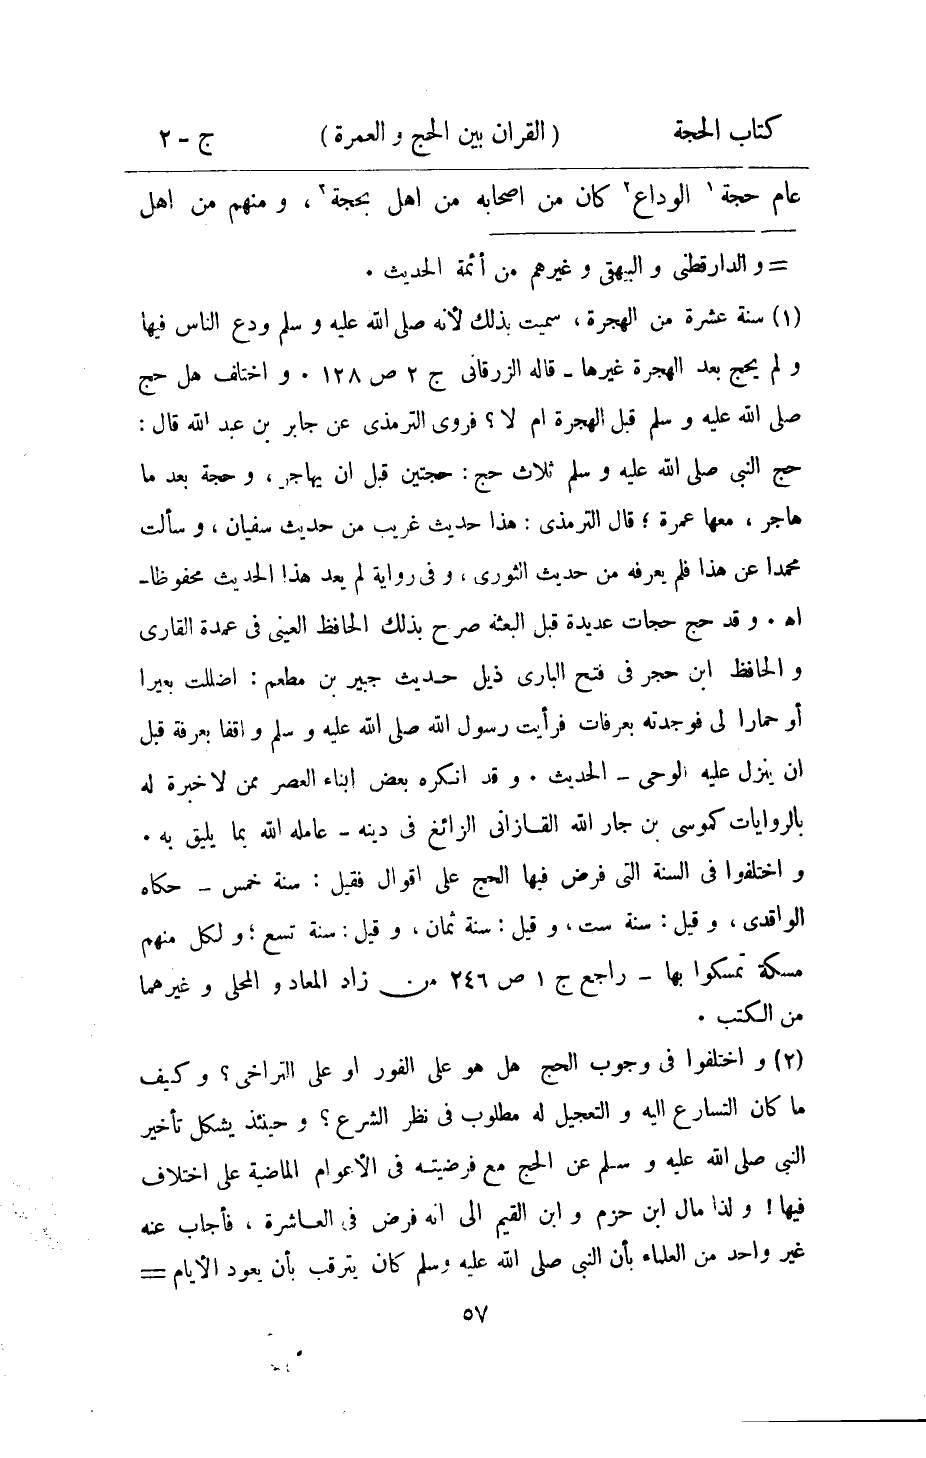 كتاب الحجة ( القران بين الحج و العمرة ) ج - ٢
عام حجة ١ الوداع ٢ كان من اصحابه من اهل بحجة ٢ ، و منهم من اهل
= و الدارقطنى و البيهقى و غيرهم من أئمة الحديث ٠
(١) سنة عشرة من الهجرة ، سميت بذلك لأنه صلى الله عليه و سلم ودع الناس فيها
و لم يحج بعد الهجرة غيرها ـ قاله الزرقانى ج ٢ ص ١٢٨ ٠ و اختلف هل حج
صلى الله عليه و سلم قبل الهجرة ام لا ؟ فروى الترمذى عن جابر بن عبد الله قال :
حج النبى صلى الله عليه و سلم ثلاث حج : حجتين قبل ان يهاجر ، و حجة بعد ما
هاجر ، معها عمرة ؛ قال الترمذى : هذا حديث غريب من حديث سفيان ، و سألت
محمدا عن هذا فلم يعرفه من حديث الثورى ، و فى رواية لم يعد هذا الحديث محفوظا ـ
اه ٠ و قد حج حجات عديدة قبل البعثة صرح بذلك الحافظ العينى فى عمدة القارى
و الحافظ ابن حجر فى فتح البارى ذيل حديث جبير بن مطعم : اضللت بعيرا
أو حمارا لى فوجدته بعرفات فرأيت رسول الله صلى الله عليه و سلم واقفا بعرفة قبل
ان ينزل عليه الوحى ـ الحديث ٠ و قد انكره بعض ابناء العصر ممن لا خبرة له
بالروايات كموسى بن جار الله القازانى الزائغ فى دينه ـ عامله الله بما يليق به ٠
و اختلفوا فى السنة التى فرض فيها الحج على اقوال فقيل : سنة خمس ـ حكاه
الواقدى ، و قيل : سنة ست ، و قيل : سنة ثمان ، و قيل : سنة تسع ؛ و لكل منهم
مسكة تمسكوا بها ـ راجع ج ١ ص ٢٤٦ من زاد المعاد و المحلى و غيرهما
من الكتب ٠
(٢) و اختلفوا فى وجوب الحج هل هو على الفور او على التراخى ؟ و كيف
ما كان التسارع اليه و التعجيل له مطلوب فى نظر الشرع ؟ و حينئذ يشكل تأخير
النبى صلى الله عليه و سلم عن الحج مع فرضيته فى الأعوام الماضية على اختلاف
فيها ! و لذا مال ابن حزم و ابن القيم الى انه فرض فى العاشرة ، فأجاب عنه
غير واحد من العلماء بأن النبى صلى الله عليه وسلم كان يترقب بأن يعود الأيام =
٥٧